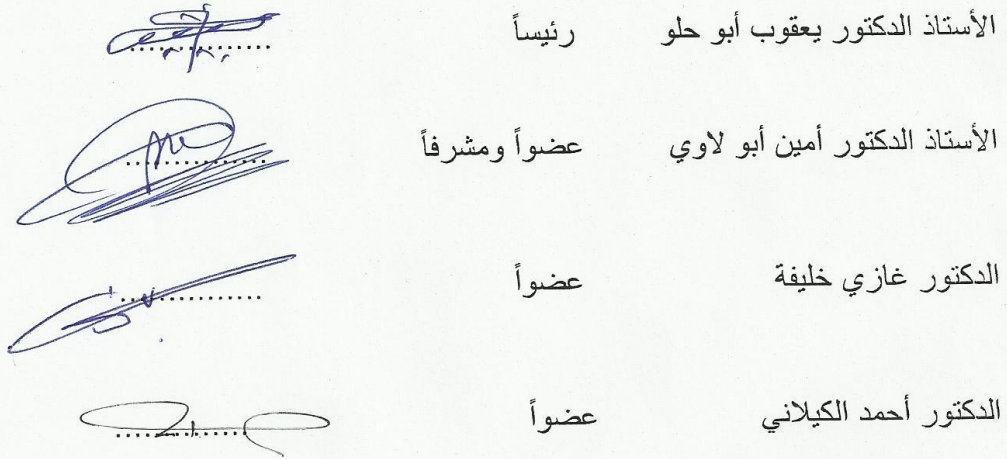 الأستاذ الدكتور يعقوب أبو حلو رئيساً ................
الأستاذ الدكتور أمين أبو لاوي عضواً ومشرفاً ................
الدكتور غازي خليفة عضواً ................
الدكتور أحمد الكيلاني عضواً ................